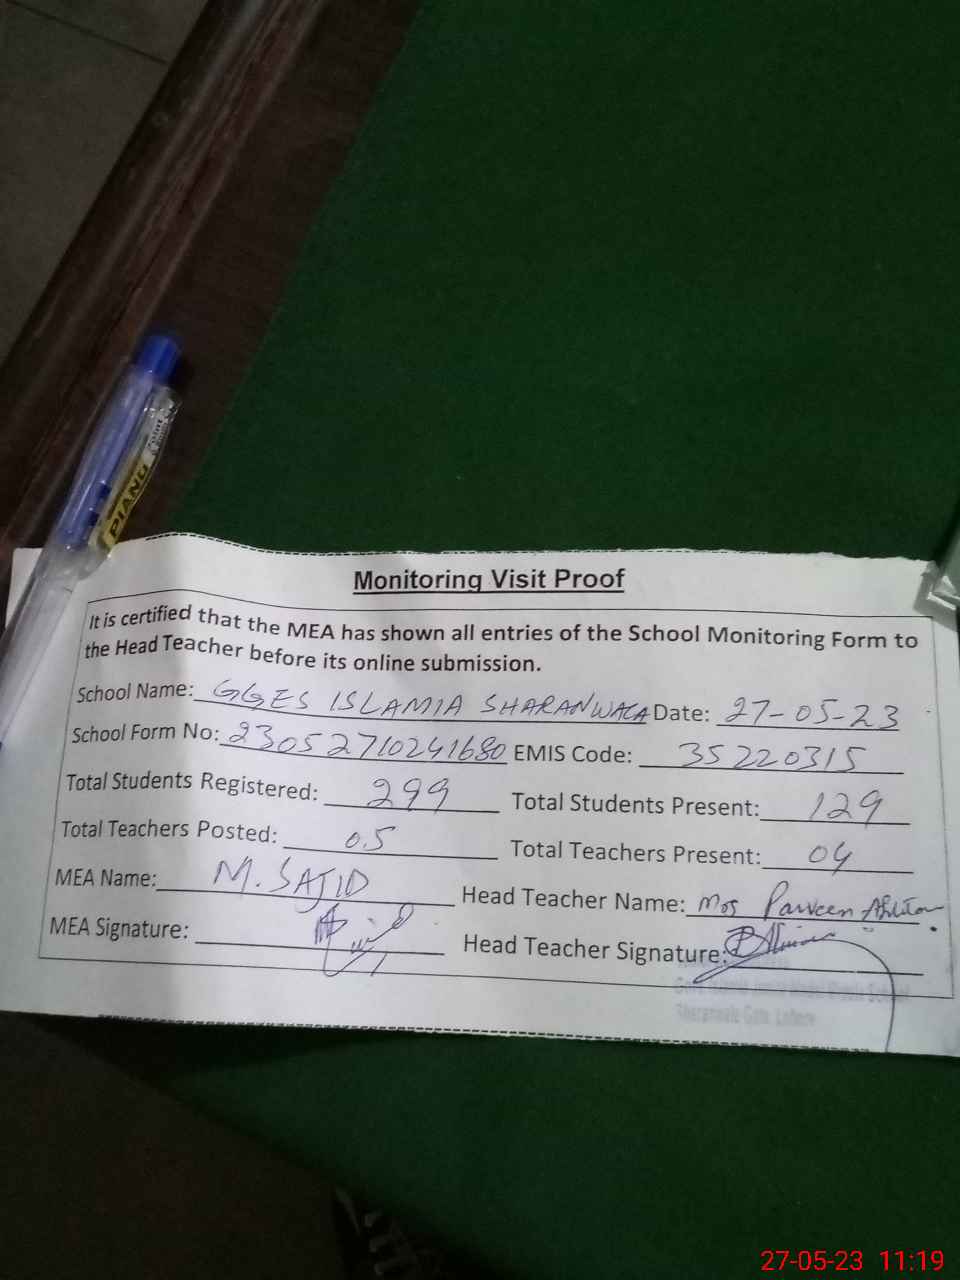 PIANO
Monitoring Visit Proof
It is certified that the MEA has shown all entries of the School Monitoring Form to
the Head Teacher before its online submission.
School Name: GGES ISLAMIA SHARANWALA Date: 27-05-23
School Form No: 23052710241680 EMIS Code: 35220315
Total Students Registered: 299 Total Students Present: 129
Total Teachers Posted: 05 Total Teachers Present: 04
MEA Name: M. SAJID Head Teacher Name: Parveen
MEA Signature: Head Teacher Signature:
School
Sharanwala Gate Lahore
27-05-23 11:19